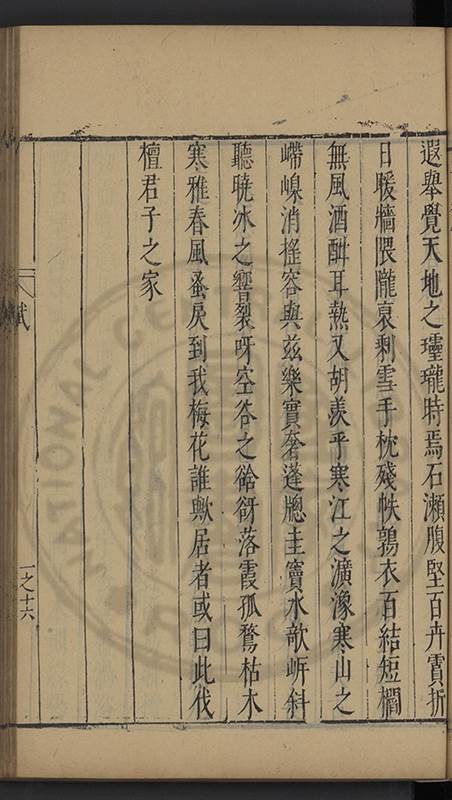 遐舉覺天地之㻿瓏時焉石瀬腹堅百卉賈折
日暖牆隈隴裒剩雪手枕殘帙鶉衣百結短櫩
無風酒酣耳熱又胡羨乎寒江之瀇瀁寒山之
嵽嵲消搖容與兹樂實奢蓬牕圭竇水欹岍斜
聽曉氷之響裂呀空谷之谽谺落霞孤鶩枯木
寒雅春風蚤戾到我梅花誰歟居者或曰此伐
檀君子之家
賦
一之十六